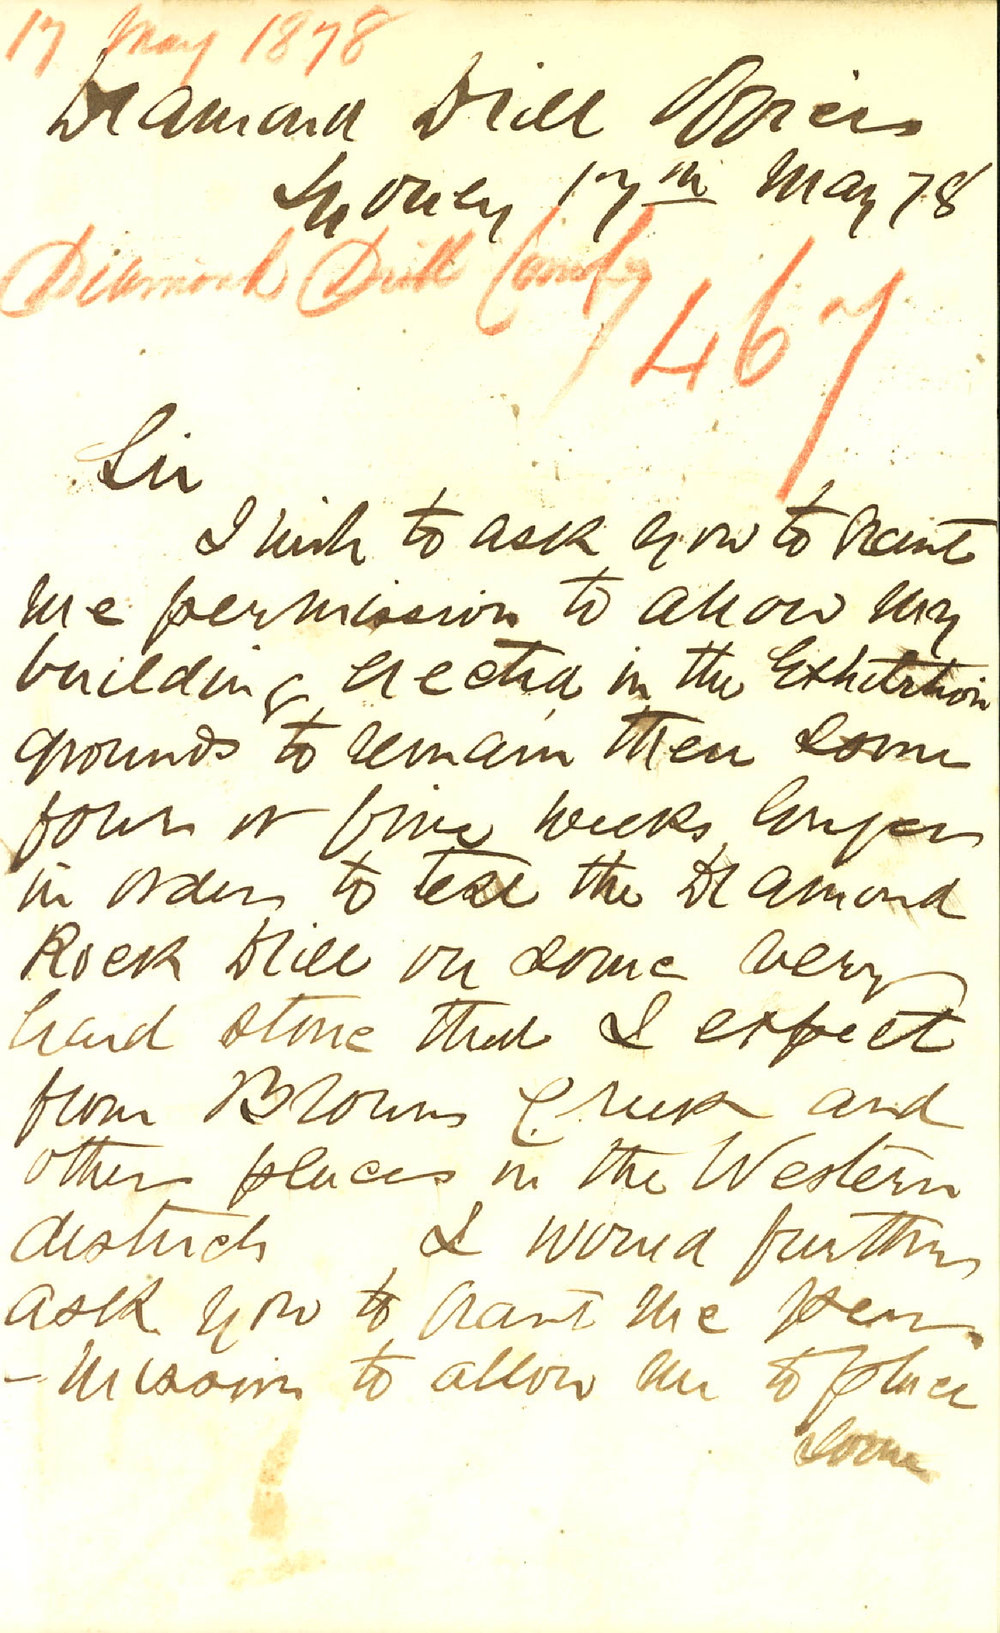 17 May 1878
Diamond Drill Offices
Sydney 17th May 78
Diamond Drill Compy
467
Sir
I wish to ask you to grant
me permission to allow my
building erected in the Exhibition
grounds to remain there some
four or five weeks longer
in order to test the Diamond
Rock Drill on some very
hard stone that I expect
from Browns Creek and
other places in the Western
districts I would further
ask you to grant me per
-mission to allow me to place
some